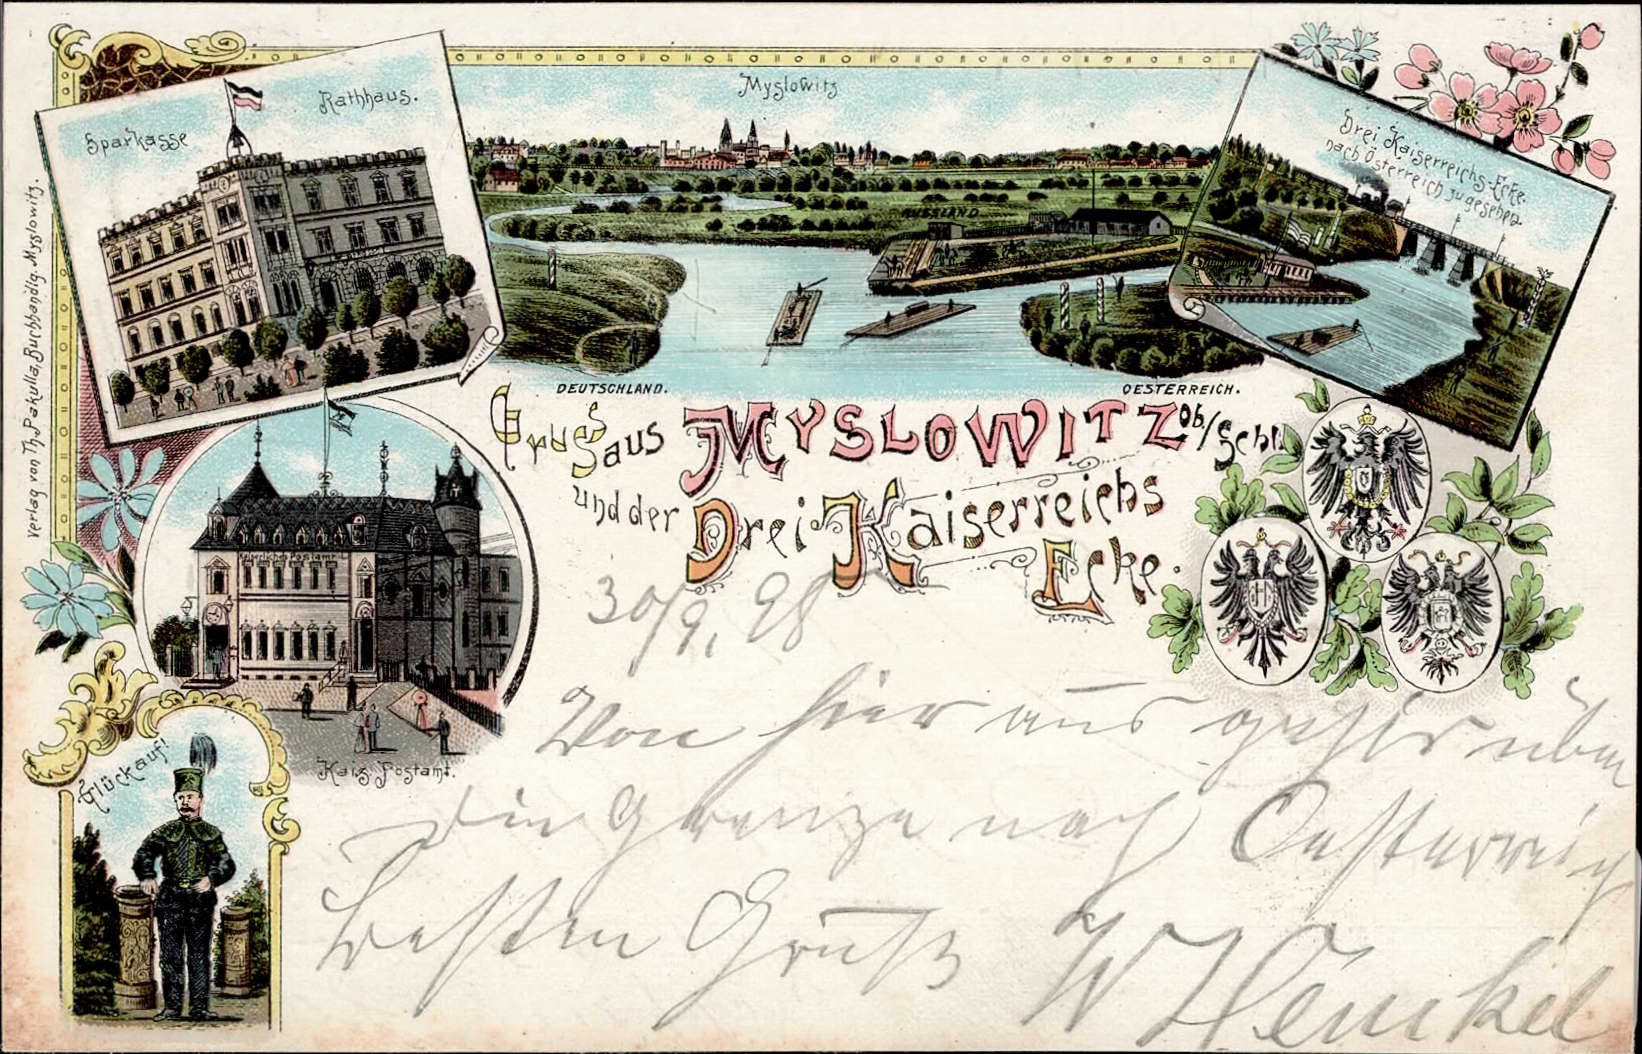 Sparkasse
Rathhaus.
Myslowitz
Drei Kaiserreichs-Ecke.
nach Österreich zu gesehen.
RUSSLAND
DEUTSCHLAND.
OESTERREICH.
Verlag von Th. Pakulla, Buchhandlg. Myslowitz.
Gruss aus MYSLOWITZ Ob./Schl.
und der Drei-Kaiserreichs
Ecke.
Kaiserliches Postamt
Kais. Postamt.
Glückauf!
30/9. 98
Von hier aus geht's über
die Grenze nach Oesterreich
Besten Gruß W Henkel